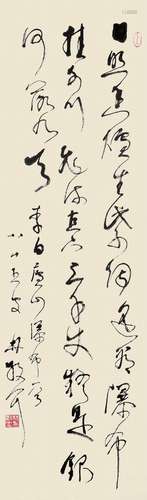 日照香爐生紫烟遥看瀑布
挂前川飛流直下三千丈疑是銀
河落九天 李白廬山瀑布
八十五叟林散耳